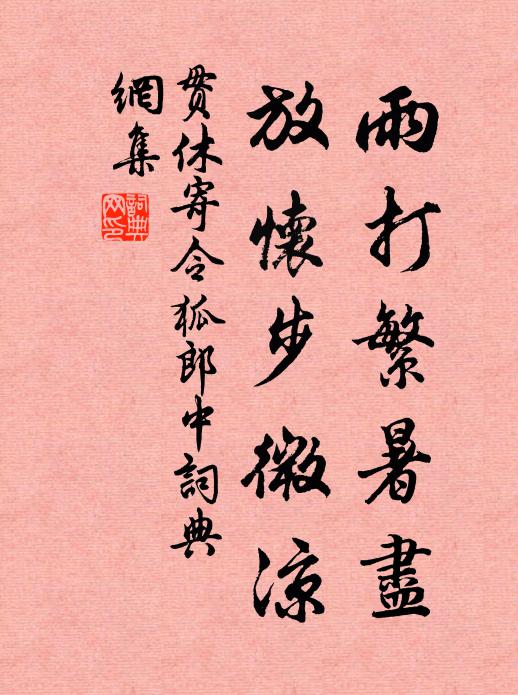 雨打繁暑盡
放懷步微涼
貫休寄令狐郎中詞典
網集
詞典網印